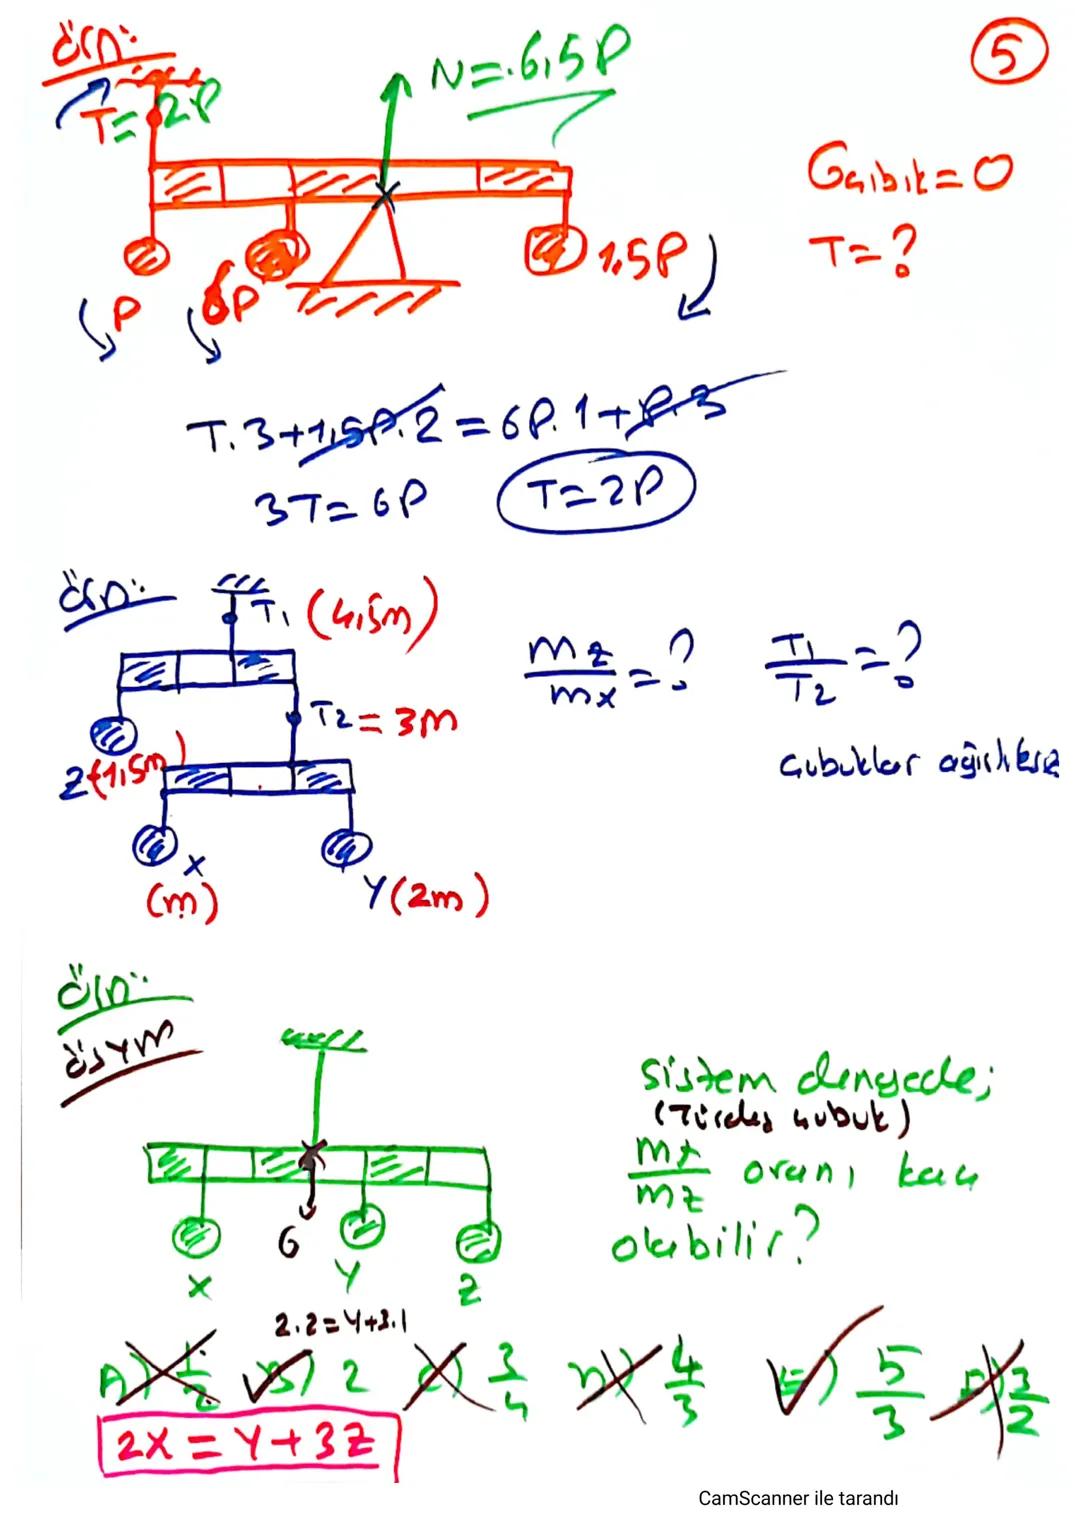 ÖrN:
5
N=.6,5P
T=2P
Gçubuk=0
T=?
P
6P
1,5P
T.3+1,5P.2=6P.1+P.3
3T=6P
T=2P
ÖrN:
T₁ (4,5m)
mz/mx=? T₁/T₂=?
T₂=3m
Çubuklar ağırlıksız
Z(1,5m)
X
(m)
Y(2m)
ÖrN:
ÖSYM
Sistem dengede;
(Türdeş çubuk)
mx/mz oranı kaç
olabilir?
G
X
Y
Z
2.2=Y+3.1
A) 1/2 B) 2 C) 3/4 D) 4/3 E) 5/3 F) 3/2
2X=Y+3Z
CamScanner ile tarandı